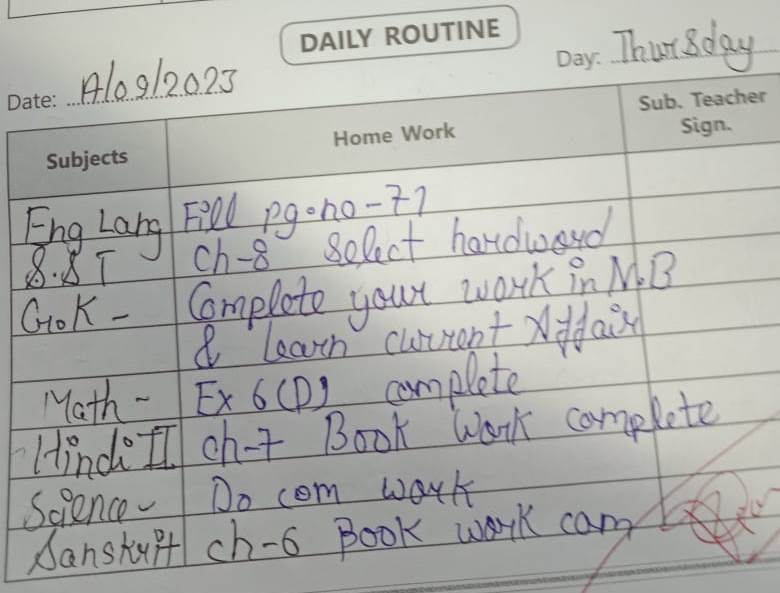 DAILY ROUTINE
Date: /09/2023 Day: Thursday
Subjects Home Work Sub. Teacher Sign.
Eng Lang Fill pg.no-71
S.S T Ch-8 Select hardword
G.K - Complete your work in N.B
& learn current Affair
Math - Ex 6(D) complete
Hindi II ch-7 Book Work complete
Science - Do com work
Sanskrit ch-6 Book work com